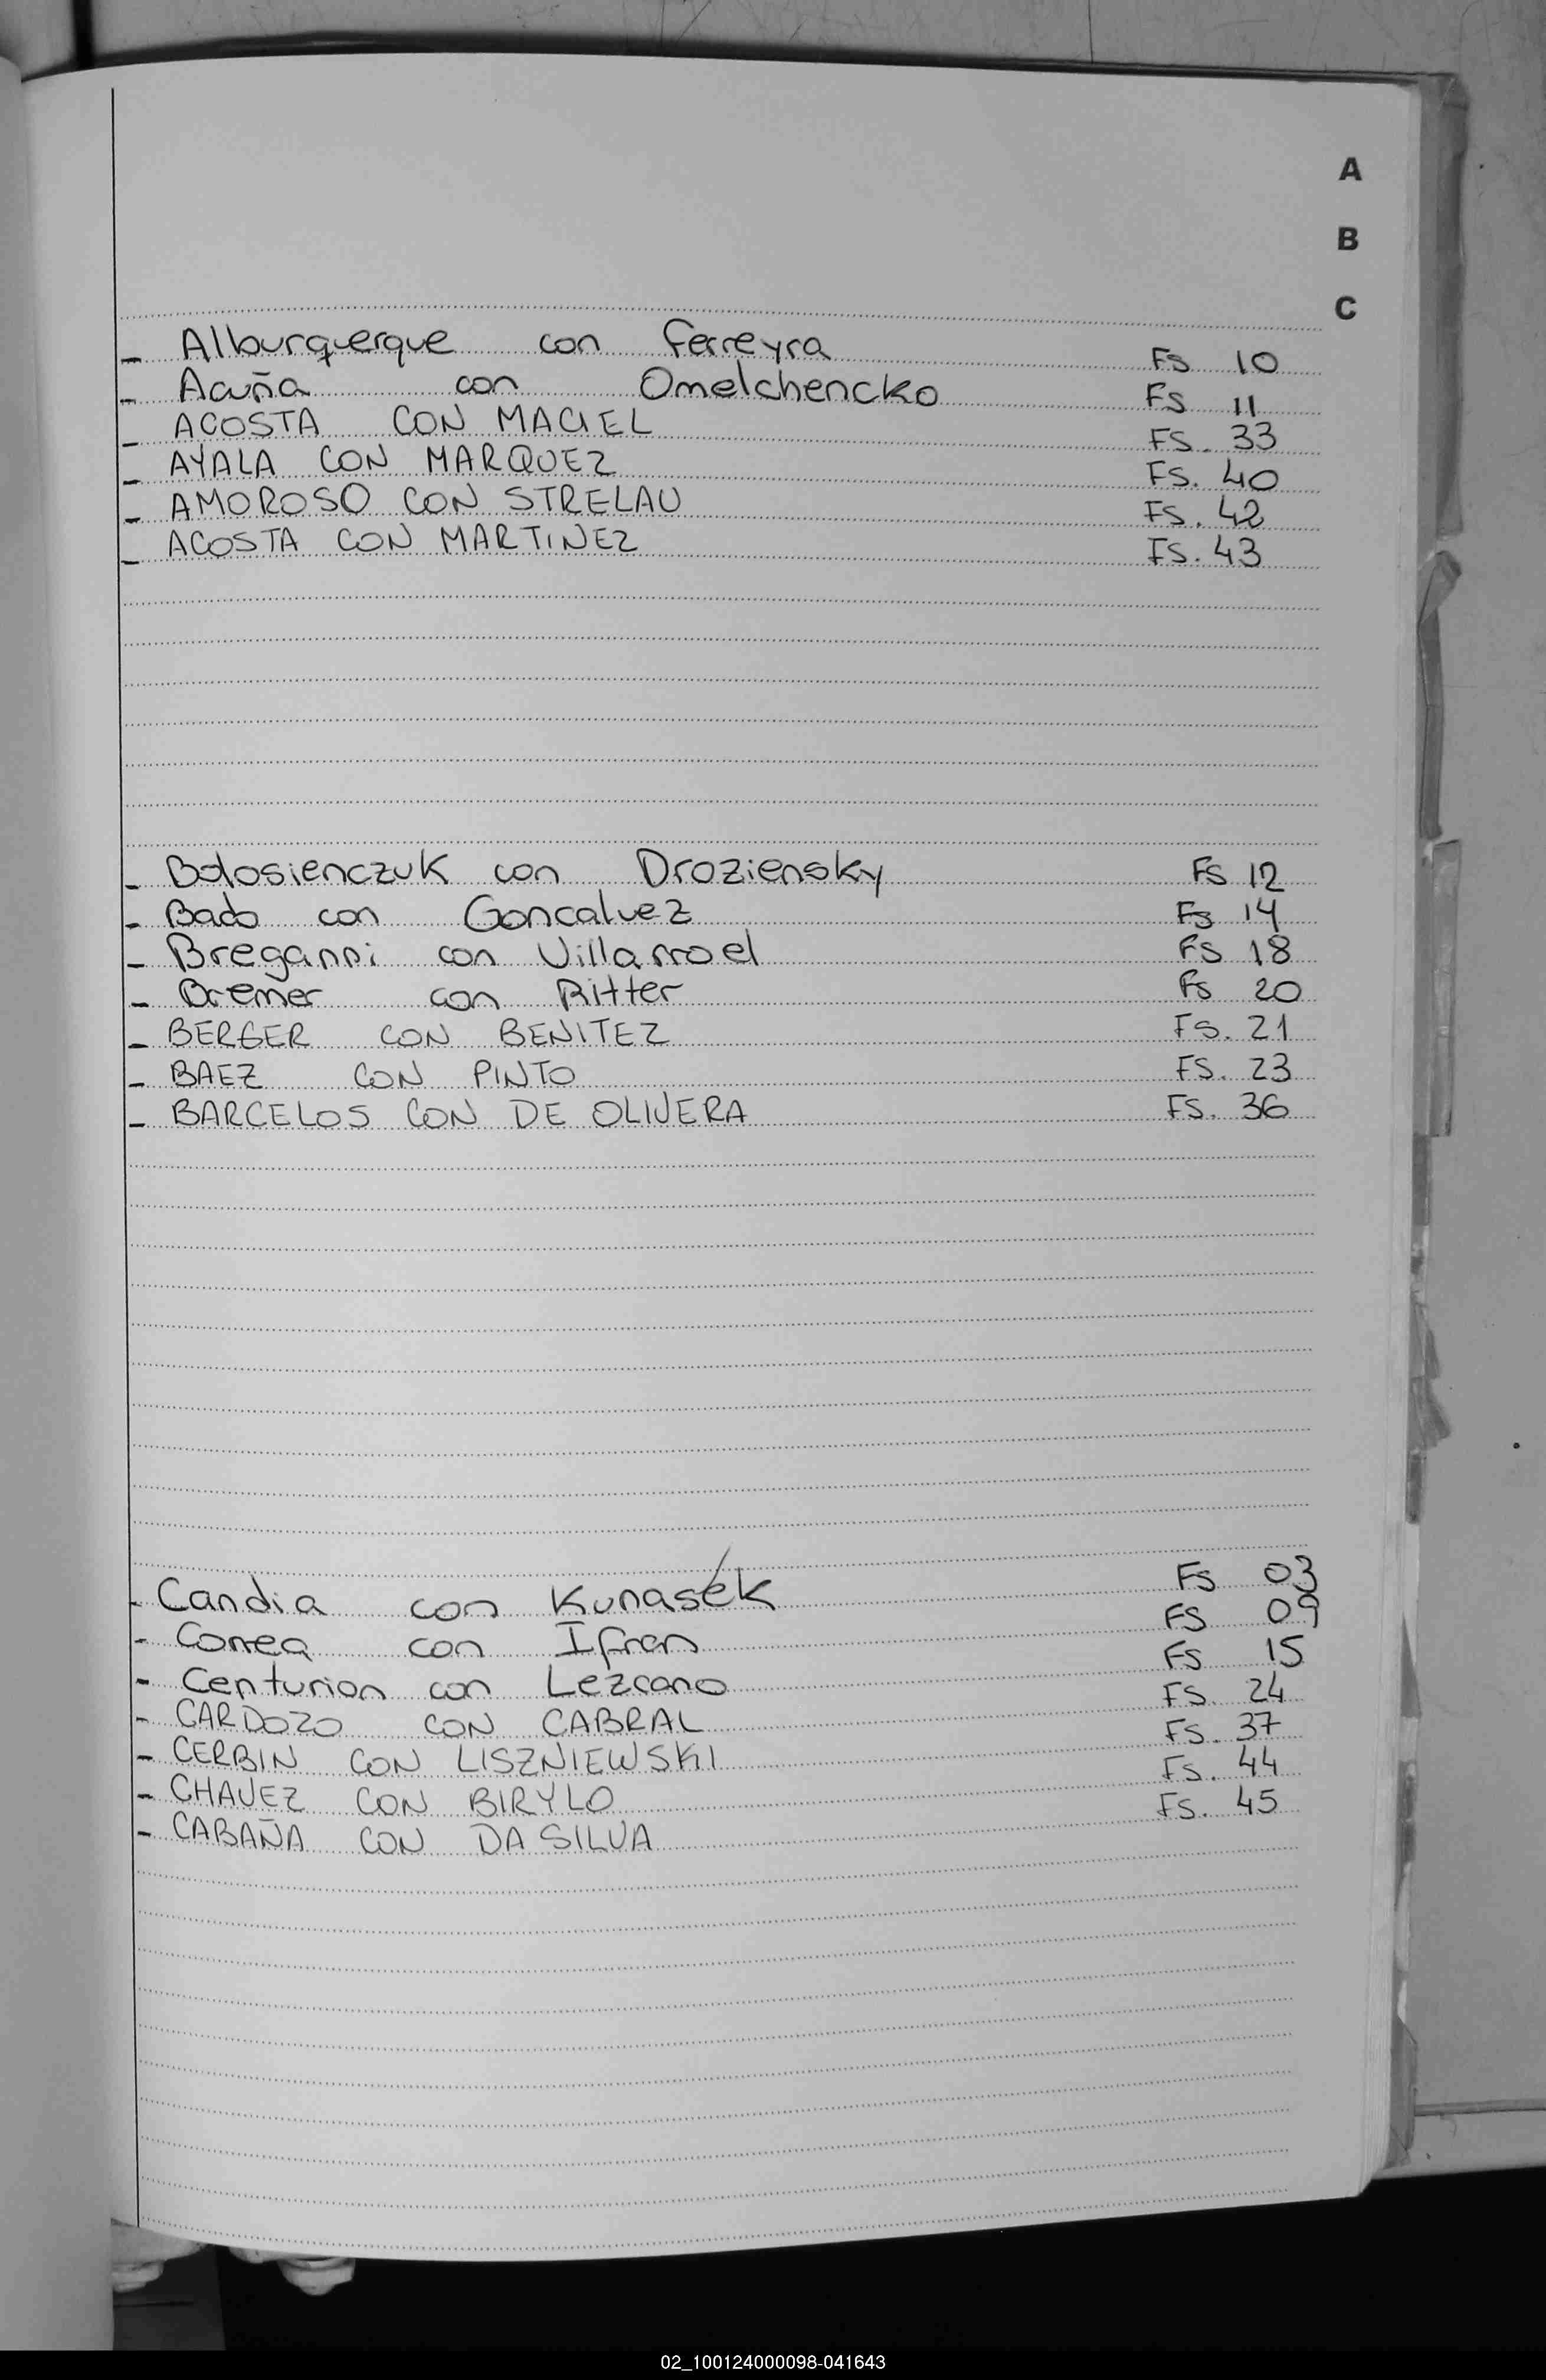 A
B
C
- Alburquerque con Ferreyra Fs 10
- Acuña con Omelchencko Fs 11
- ACOSTA CON MACIEL FS. 33
- AYALA CON MARQUEZ FS. 40
- AMOROSO CON STRELAU FS. 42
- ACOSTA CON MARTINEZ FS. 43
- Bolosienczuk con Droziensky Fs 12
- Bado con Goncalvez Fs 14
- Breganni con Villarroel Fs 18
- Bremer con Ritter Fs 20
- BERGER CON BENITEZ FS. 21
- BAEZ CON PINTO FS. 23
- BARCELOS CON DE OLIVERA FS. 36
- Candia con Kunasék Fs 03
- Correa con Ifran Fs 09
- Centurion con Lezcano Fs 15
- CARDOZO CON CABRAL FS. 24
- CERBIN CON LISZNIEWSKI FS. 37
- CHAVEZ CON BIRYLO FS. 44
- CABAÑA CON DA SILVA FS. 45
02_100124000098-041643